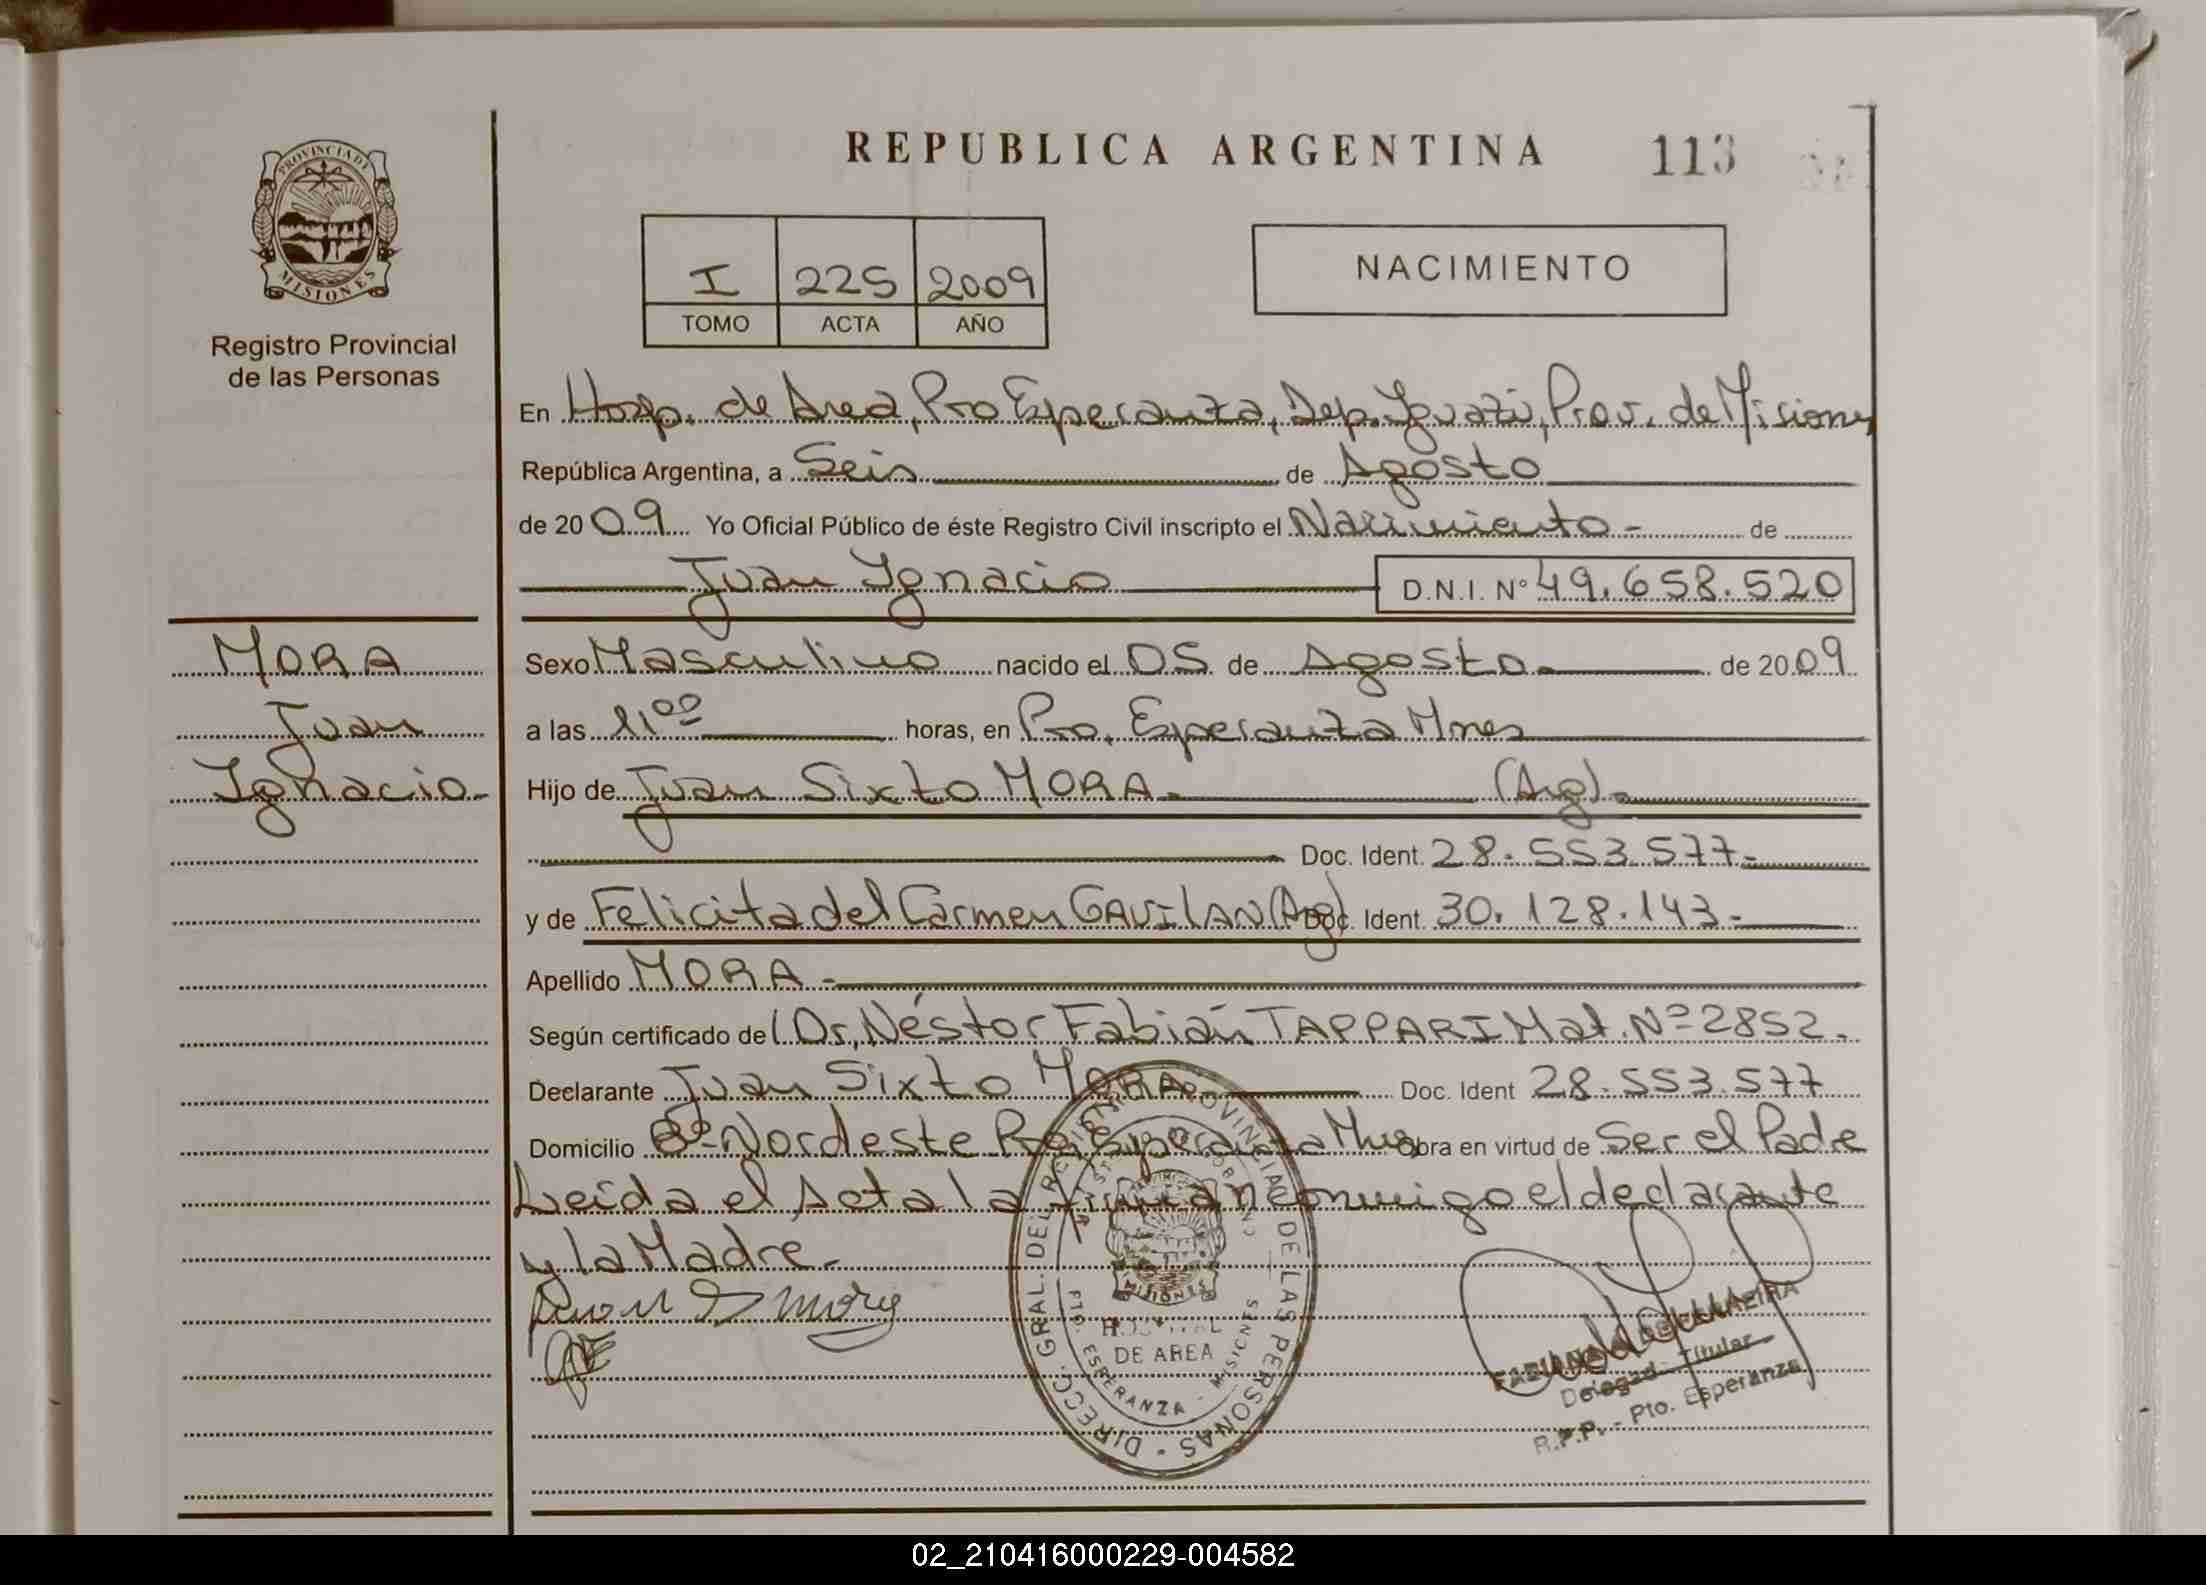 REPUBLICA ARGENTINA
113
PROVINCIA DE MISIONES
Registro Provincial
de las Personas
I 225 2009
TOMO ACTA AÑO
NACIMIENTO
En Hosp. de Area, Pto Esperanza, Dep. Iguazú, Prov. de Misiones
República Argentina, a Seis de Agosto
de 2009 Yo Oficial Público de éste Registro Civil inscripto el Nacimiento - de
Juan Ignacio D.N.I. N° 49.658.520
MORA
Juan
Ignacio -
Sexo Masculino nacido el 05 de Agosto - de 2009
a las 11⁰⁰ horas, en Pto. Esperanza Mnes
Hijo de Juan Sixto MORA - (Arg) -
Doc. Ident. 28.553.577 -
y de Felicita del Carmen GAVILAN (Arg) Doc. Ident. 30.128.143 -
Apellido MORA -
Según certificado de Dr. Néstor Fabián TAPPARI Mat. Nº 2852 -
Declarante Juan Sixto MORA Doc. Ident 28.553.577
Domicilio Bº Nordeste Pto. Esperanza Mnes Obra en virtud de Ser el Padre
Leída el Acta la firman conmigo el declarante
y la Madre -
DIRECC. GRAL. DEL REGISTRO PROVINCIAL DE LAS PERSONAS
MISIONES
HOSPITAL
DE AREA
PTO. ESPERANZA - MISIONES
Delegada Titular
R.P.P. - Pto. Esperanza
02_210416000229-004582